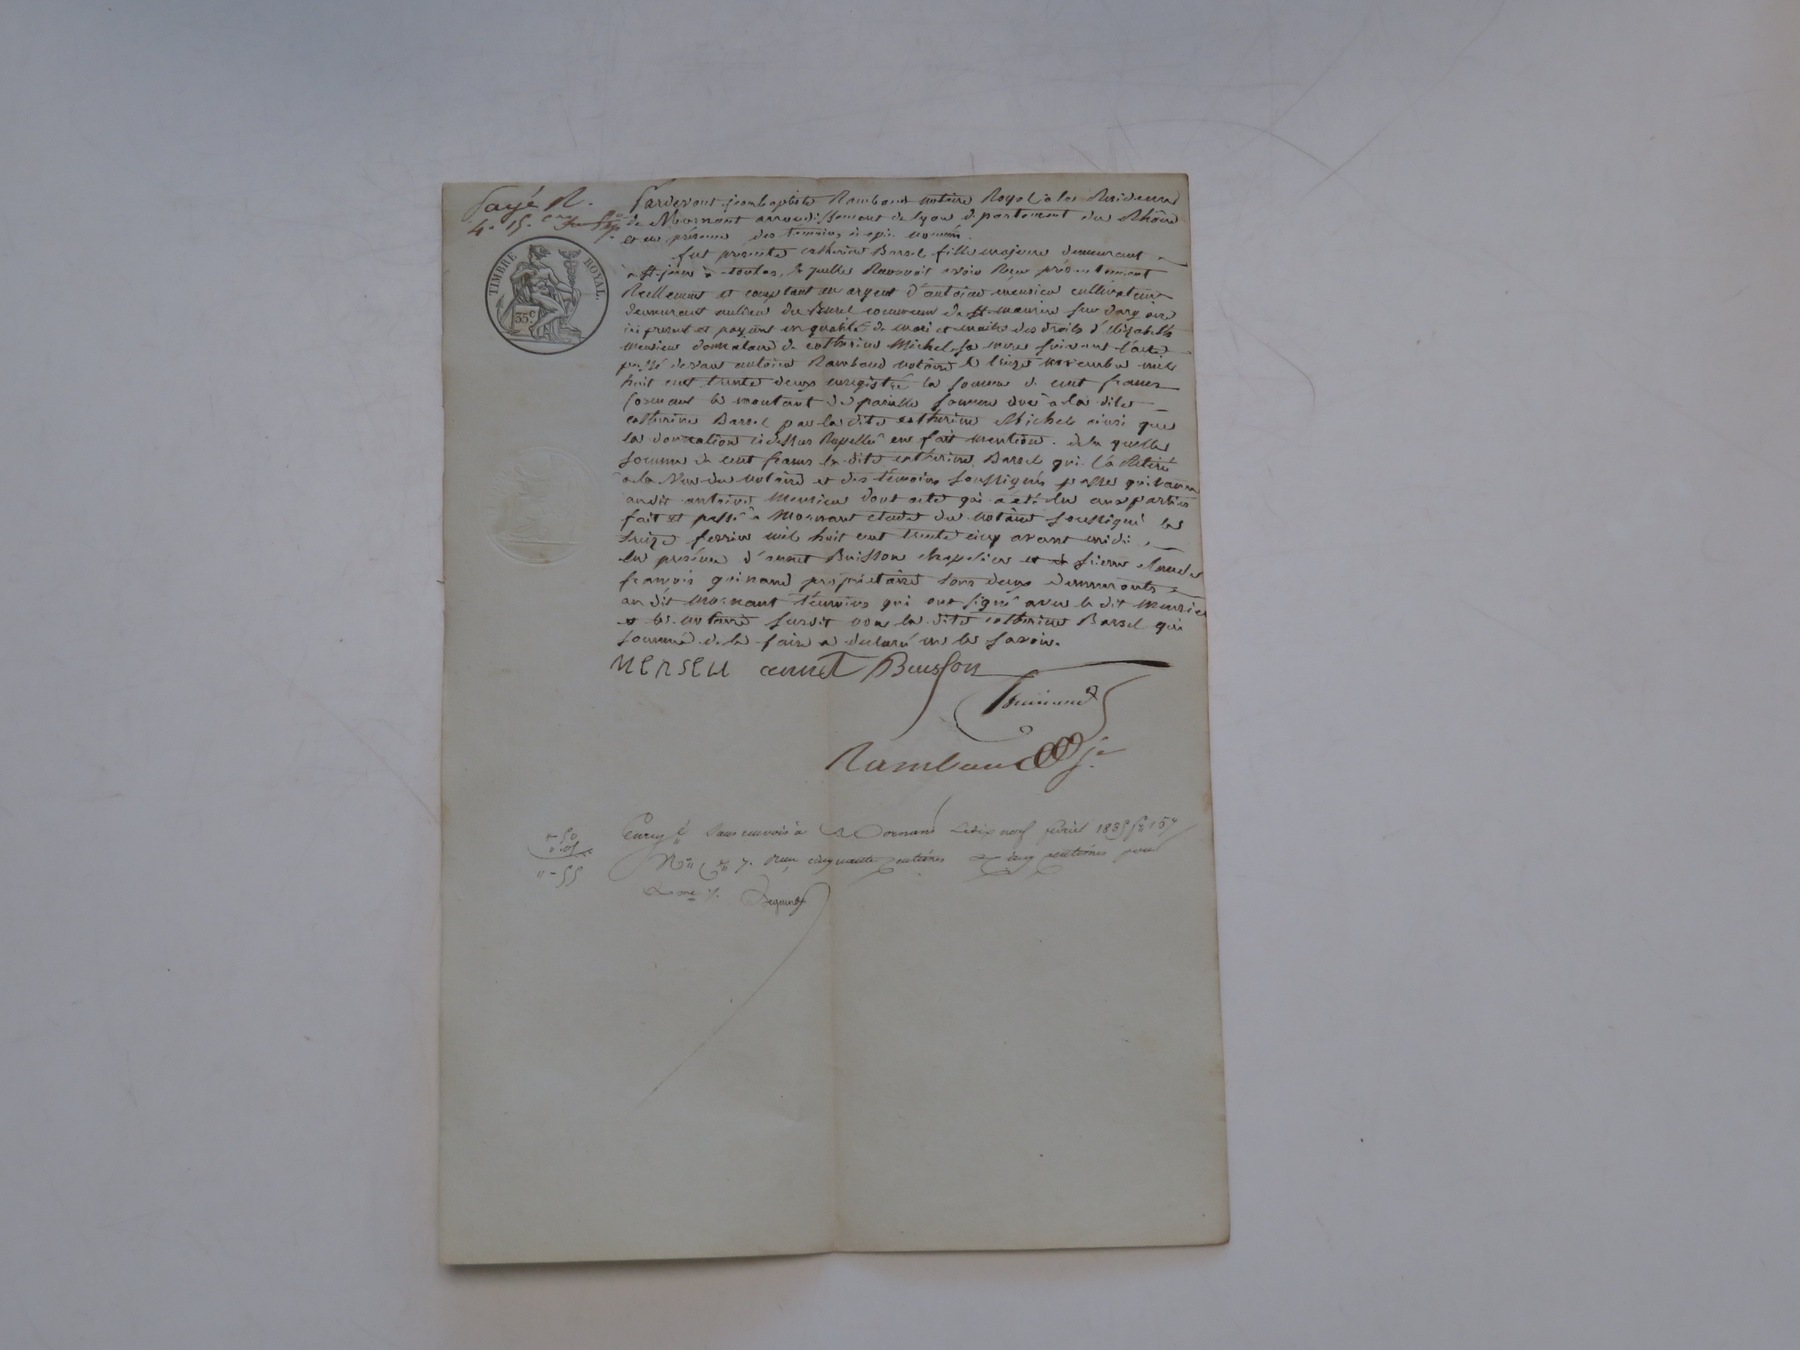 payé R.
4. 15.
TIMBRE ROYAL.
35 c.
Pardevant jeanbaptiste Rambaud notaire Royal à la Residence
de Mornant arrondissement de lyon departement du Rhône
et en présence des témoins ci apres nommés
fut presente catherine Barsel fille majeure demeurant
à St jean à toulas, laquelle Reconnoit avoir Reçu présentement
Reellement et comptant en argent d'antoine mensieu cultivateur
demeurant au lieu du Burel commune de St maurice sur dargoire
ici present et payant en qualité de mari et maitre des droits d'Elizabeth
mensieu donataire de catherine Michel sa mere suivant l'acte
passé devant antoine Rambaud notaire le treize novembre mil
huit cent trente deux enregistré la somme de cent francs
formant le montant de pareille somme due à la dite
catherine Barsel par la dite catherine Michel ainsi que
la donnation ci dessus Rapellée en fait mention. de la quelle
somme de cent francs la dite catherine Barsel qui l'a Retiré
à la Vue du notaire et des témoins soussignés passe quittance
audit antoine Mensieu dont acte qui a été lu aux parties
fait et passé à Mornant etude du notaire soussigné le
seize fevrier mil huit cent trente cinq avant midi
en présence d'annet Buisson chapelier et de pierre
françois guinand propriétaire tous deux demeurants
au dit Mornant témoins qui ont signé avec le dit Mensieu
et le notaire susdit non la dite catherine Barsel qui
sommée de le faire a declaré ne le savoir.
MENSEU annet Buisson
Guinand
Rambaud je
Enregé sans renvois à Mornant le dix neuf fevrier 1835 fo 157
Ro Co 7. Reçu cinquante centimes et cinq centimes pour